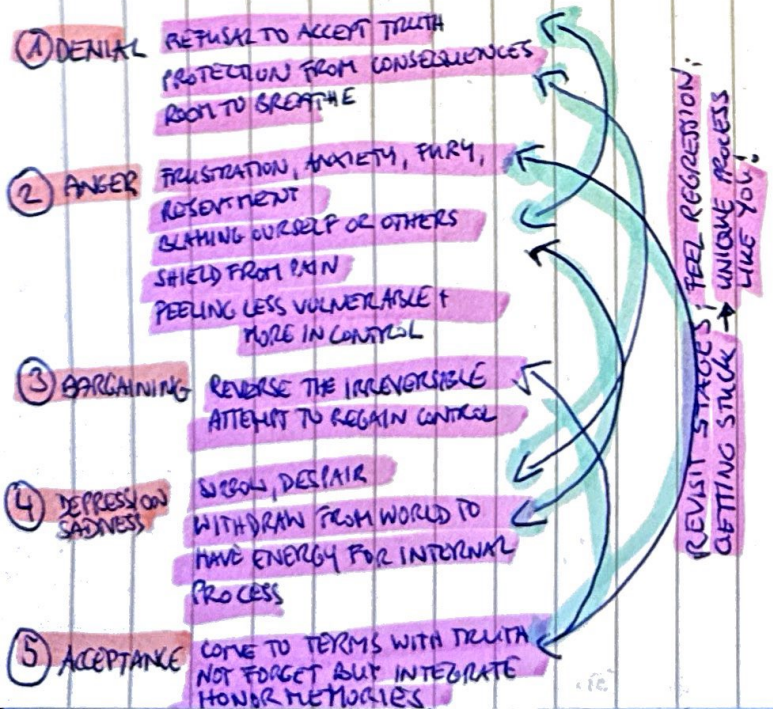 ① DENIAL REFUSAL TO ACCEPT TRUTH
PROTECTION FROM CONSEQUENCES
ROOM TO BREATHE
② ANGER FRUSTRATION, ANXIETY, FURY,
RESENTMENT
BLAMING OURSELF OR OTHERS
SHIELD FROM PAIN
FEELING LESS VULNERABLE +
MORE IN CONTROL
③ BARGAINING REVERSE THE IRREVERSIBLE
ATTEMPT TO REGAIN CONTROL
④ DEPRESSION
SADNESS
SORROW, DESPAIR
WITHDRAW FROM WORLD TO
HAVE ENERGY FOR INTERNAL
PROCESS
⑤ ACCEPTANCE COME TO TERMS WITH TRUTH
NOT FORGET BUT INTEGRATE
HONOR MEMORIES
REVISIT STAGES; FEEL REGRESSION;
GETTING STUCK → UNIQUE PROCESS
LIKE YOU!